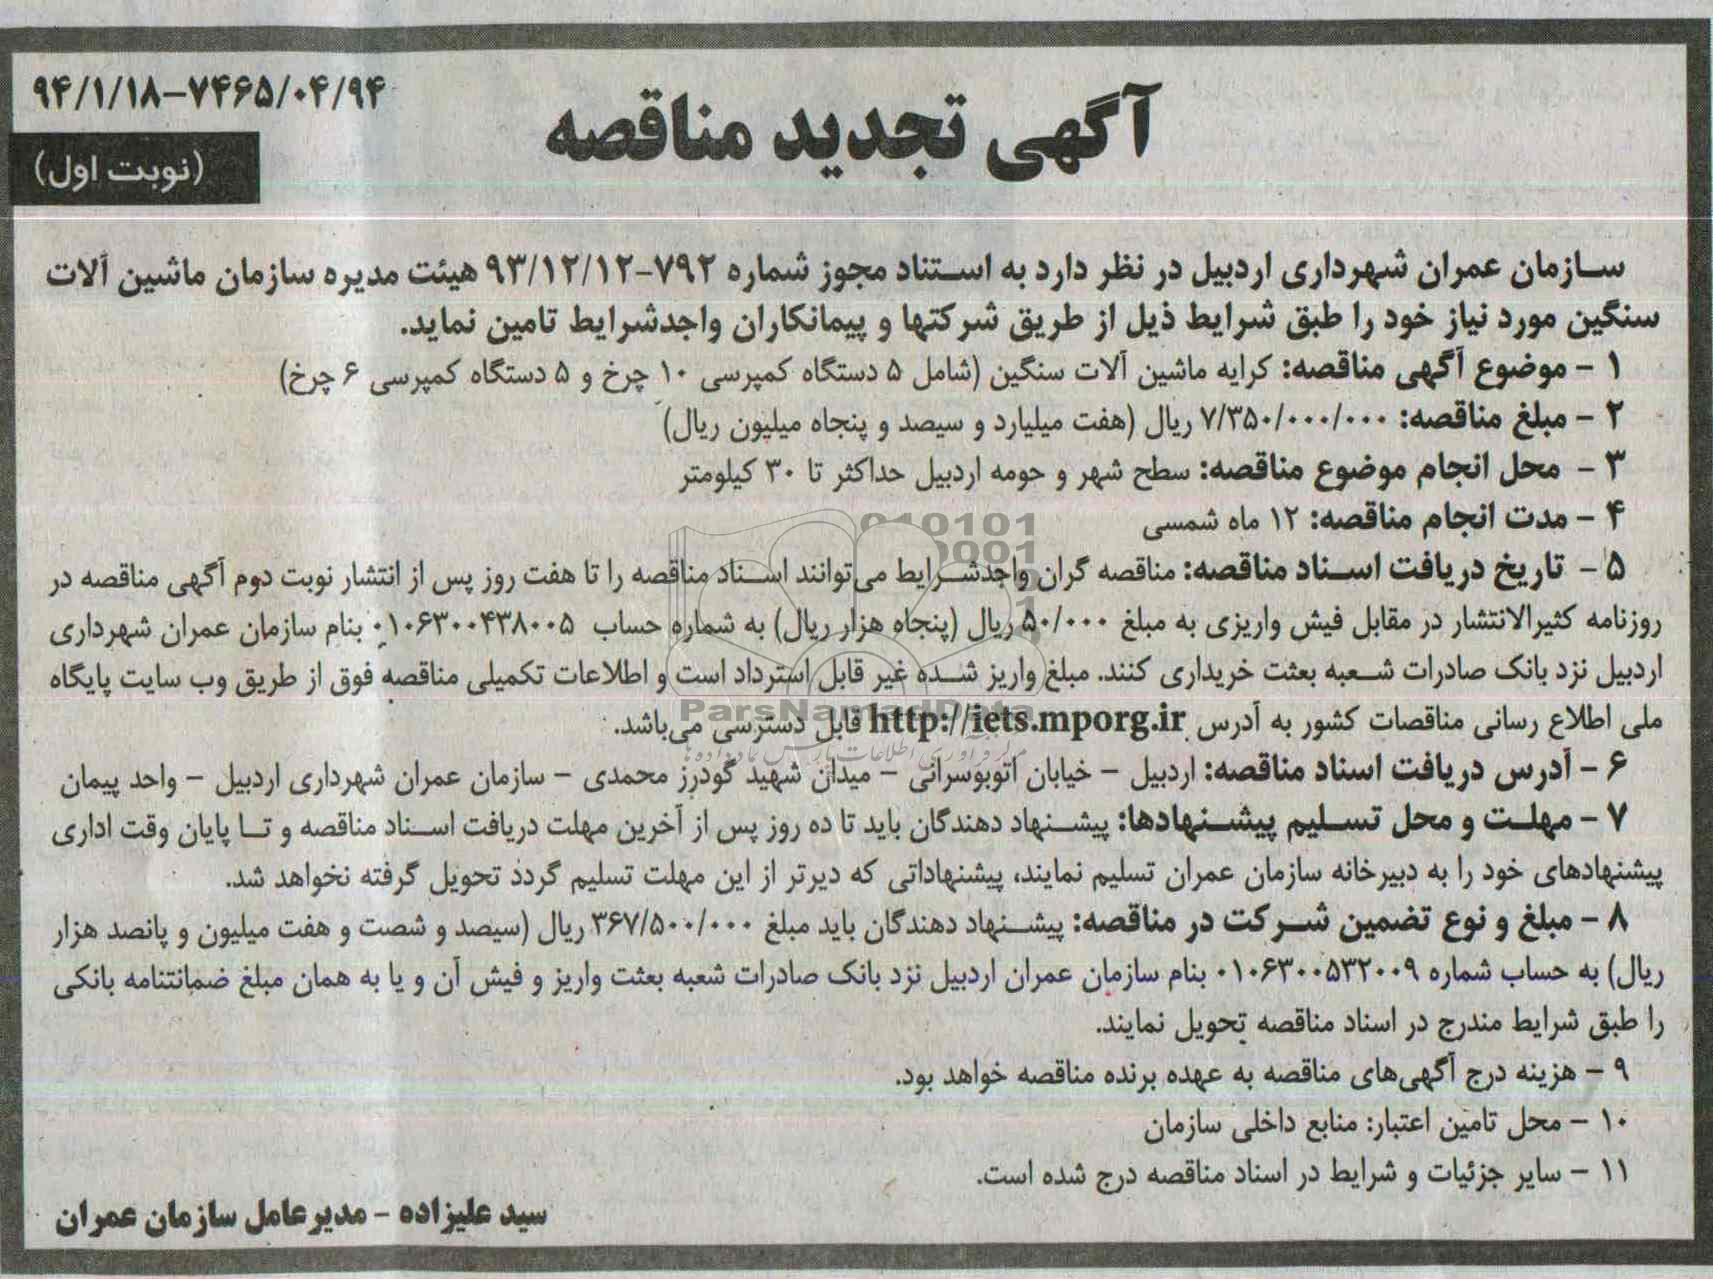 ۹۴/۱/۱۸-۷۴۶۵/۰۴/۹۴
آگهی تجدید مناقصه
(نوبت اول)
سازمان عمران شهرداری اردبیل در نظر دارد به استناد مجوز شماره ۷۹۲-۹۳/۱۲/۱۲ هیئت مدیره سازمان ماشین آلات
سنگین مورد نیاز خود را طبق شرایط ذیل از طریق شرکتها و پیمانکاران واجدشرایط تامین نماید.
۱ - موضوع آگهی مناقصه: کرایه ماشین آلات سنگین (شامل ۵ دستگاه کمپرسی ۱۰ چرخ و ۵ دستگاه کمپرسی ۶ چرخ)
۲ - مبلغ مناقصه: ۷/۳۵۰/۰۰۰/۰۰۰ ریال (هفت میلیارد و سیصد و پنجاه میلیون ریال)
۳ - محل انجام موضوع مناقصه: سطح شهر و حومه اردبیل حداکثر تا ۳۰ کیلومتر
۴ - مدت انجام مناقصه: ۱۲ ماه شمسی
۵ - تاریخ دریافت اسناد مناقصه: مناقصه گران واجدشرایط می‌توانند اسناد مناقصه را تا هفت روز پس از انتشار نوبت دوم آگهی مناقصه در
روزنامه کثیرالانتشار در مقابل فیش واریزی به مبلغ ۵۰/۰۰۰ ریال (پنجاه هزار ریال) به شماره حساب ۰۱۰۶۳۰۰۴۳۸۰۰۵ بنام سازمان عمران شهرداری
اردبیل نزد بانک صادرات شعبه بعثت خریداری کنند. مبلغ واریز شده غیر قابل استرداد است و اطلاعات تکمیلی مناقصه فوق از طریق وب سایت پایگاه
ملی اطلاع رسانی مناقصات کشور به آدرس http://iets.mporg.ir قابل دسترسی می‌باشد.
۶ - آدرس دریافت اسناد مناقصه: اردبیل - خیابان اتوبوسرانی - میدان شهید گودرز محمدی - سازمان عمران شهرداری اردبیل - واحد پیمان
۷ - مهلت و محل تسلیم پیشنهادها: پیشنهاد دهندگان باید تا ده روز پس از آخرین مهلت دریافت اسناد مناقصه و تا پایان وقت اداری
پیشنهادهای خود را به دبیرخانه سازمان عمران تسلیم نمایند، پیشنهاداتی که دیرتر از این مهلت تسلیم گردد تحویل گرفته نخواهد شد.
۸ - مبلغ و نوع تضمین شرکت در مناقصه: پیشنهاد دهندگان باید مبلغ ۳۶۷/۵۰۰/۰۰۰ ریال (سیصد و شصت و هفت میلیون و پانصد هزار
ریال) به حساب شماره ۰۱۰۶۳۰۰۵۳۲۰۰۹ بنام سازمان عمران اردبیل نزد بانک صادرات شعبه بعثت واریز و فیش آن و یا به همان مبلغ ضمانتنامه بانکی
را طبق شرایط مندرج در اسناد مناقصه تحویل نمایند.
۹ - هزینه درج آگهی‌های مناقصه به عهده برنده مناقصه خواهد بود.
۱۰ - محل تامین اعتبار: منابع داخلی سازمان
۱۱ - سایر جزئیات و شرایط در اسناد مناقصه درج شده است.
سید علیزاده - مدیرعامل سازمان عمران
ParsNamadData